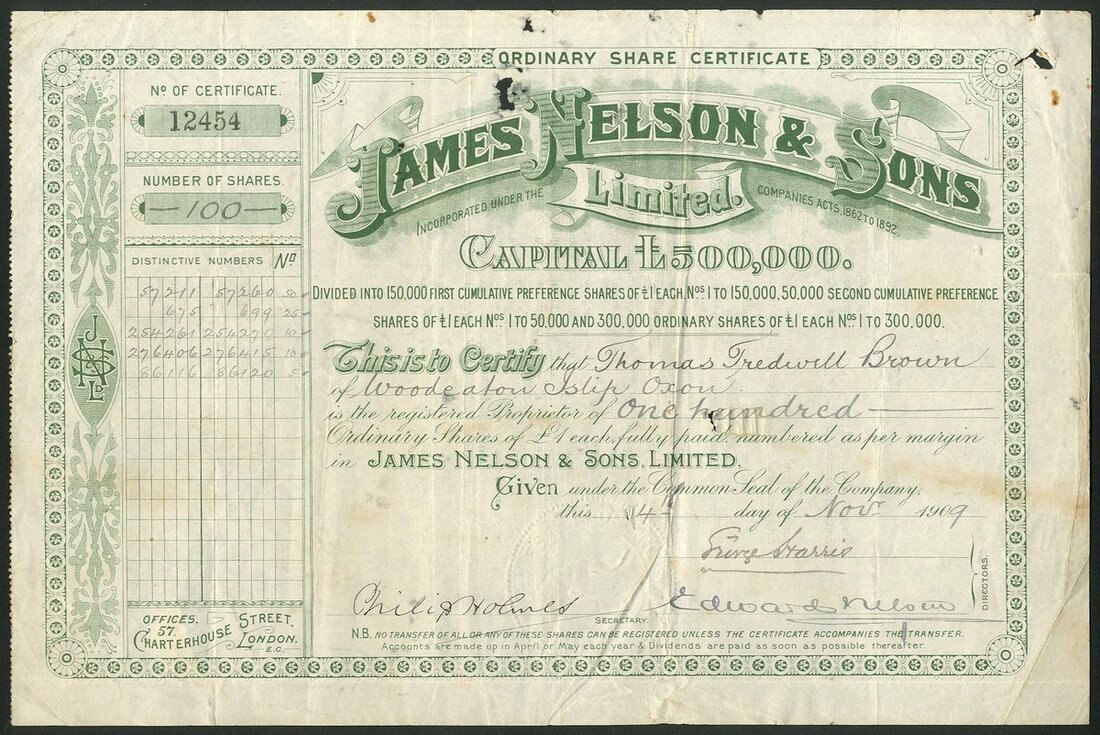 ORDINARY SHARE CERTIFICATE
No OF CERTIFICATE.
12454
NUMBER OF SHARES.
100
DISTINCTIVE NUMBERS No
57211 57260 50
675 699 25
254261 254270 10
276406 276415 10
86116 86120 5
JNS Ld
OFFICES,
57,
CHARTERHOUSE STREET,
LONDON,
E.C.
JAMES NELSON & SONS
Limited.
INCORPORATED UNDER THE COMPANIES ACTS, 1862 TO 1892.
CAPITAL £500,000.
DIVIDED INTO 150,000 FIRST CUMULATIVE PREFERENCE SHARES OF £1 EACH, Nos 1 TO 150,000, 50,000 SECOND CUMULATIVE PREFERENCE
SHARES OF £1 EACH Nos 1 TO 50,000 AND 300,000 ORDINARY SHARES OF £1 EACH Nos 1 TO 300,000.
This is to Certify that Thomas Tredwell Brown
of Woodeaton Islip Oxon
is the registered Proprietor of One hundred
Ordinary Shares of £1 each, fully paid, numbered as per margin
in JAMES NELSON & SONS, LIMITED.
Given under the Common Seal of the Company,
this 4 day of Novr 1909
Harris
DIRECTORS.
Philip Holmes Edward Nelson
SECRETARY.
N.B. NO TRANSFER OF ALL OR ANY OF THESE SHARES CAN BE REGISTERED UNLESS THE CERTIFICATE ACCOMPANIES THE TRANSFER.
Accounts are made up in April or May each year & Dividends are paid as soon as possible thereafter.